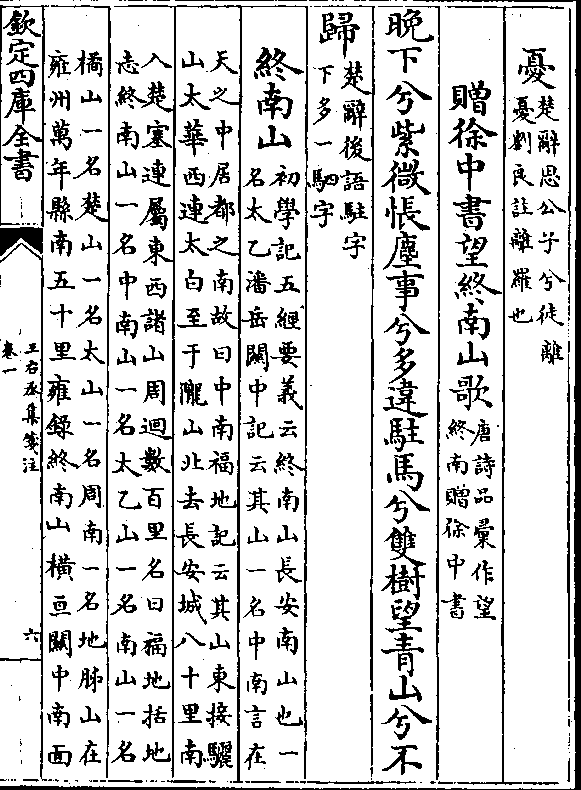 憂楚辭思公子兮徒離
憂劉良註離羅也
贈徐中書望終南山歌唐詩品彙作望
終南贈徐中書
晚下兮紫微悵塵事兮多違駐馬兮雙樹望青山兮不
歸楚辭後語駐字
下多一駟字
終南山初學記五經要義云終南山長安南山也一
名太乙潘岳關中記云其山一名中南言在
天之中居都之南故曰中南福地記云其山東接驪
山太華西連太白至于隴山北去長安城八十里南
入楚塞連屬東西諸山周迴數百里名曰福地括地
志終南山一名中南山一名太乙山一名南山一名
橘山一名楚山一名太山一名周南一名地肺山在
雍州萬年縣南五十里雍錄終南山橫亘關中南面
欽定四庫全書
王右丞集箋注
卷一
六